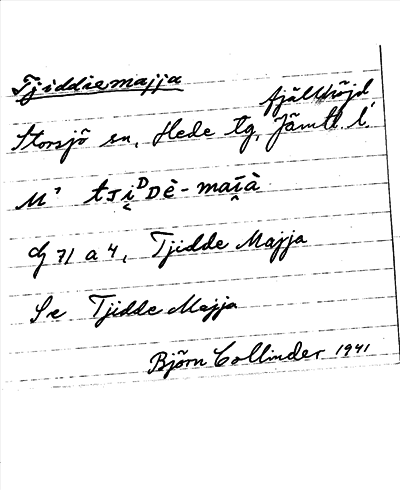 Tjiddiemajja
fjällhöjd
Storsjö sn, Hede tg, Jämtl. l.
M' tJi̮ᴰDè-maī̮à
dj 71 a 4, Tjidde Majja
Se Tjidde Majja
Björn Collinder 1941